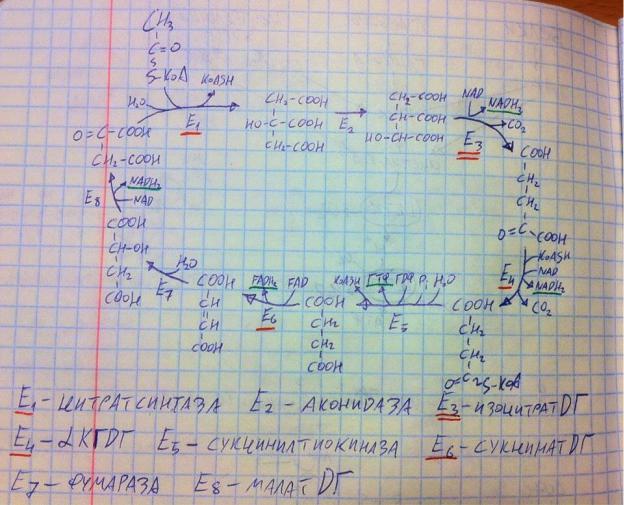 CH₃
C=O
S-КоА
H₂O КоASH
E₁
O=C-COOH
CH₂-COOH
CH₂-COOH
HO-C-COOH
CH₂-COOH
E₂
CH₂-COOH
CH-COOH
HO-CH-COOH
NAD NADH₂
CO₂
E₃
COOH
CH₂
CH₂
O=C-COOH
E₄
KoASH
NAD
NADH₂
CO₂
COOH
CH₂
CH₂
O=C~S-КоА
KoASH ГТФ ГДФ Pi H₂O
E₅
COOH
CH₂
CH₂
COOH
FADH₂ FAD
E₆
COOH
CH
CH
COOH
H₂O
E₇
COOH
CH-OH
CH₂
COOH
E₈
NADH₂
NAD
E₁-цитратсинтаза E₂-аконидаза E₃-изоцитратДГ
E₄-αКГДГ E₅-сукцинилтиокиназа E₆-сукцинатДГ
E₇-фумараза E₈-малатДГ